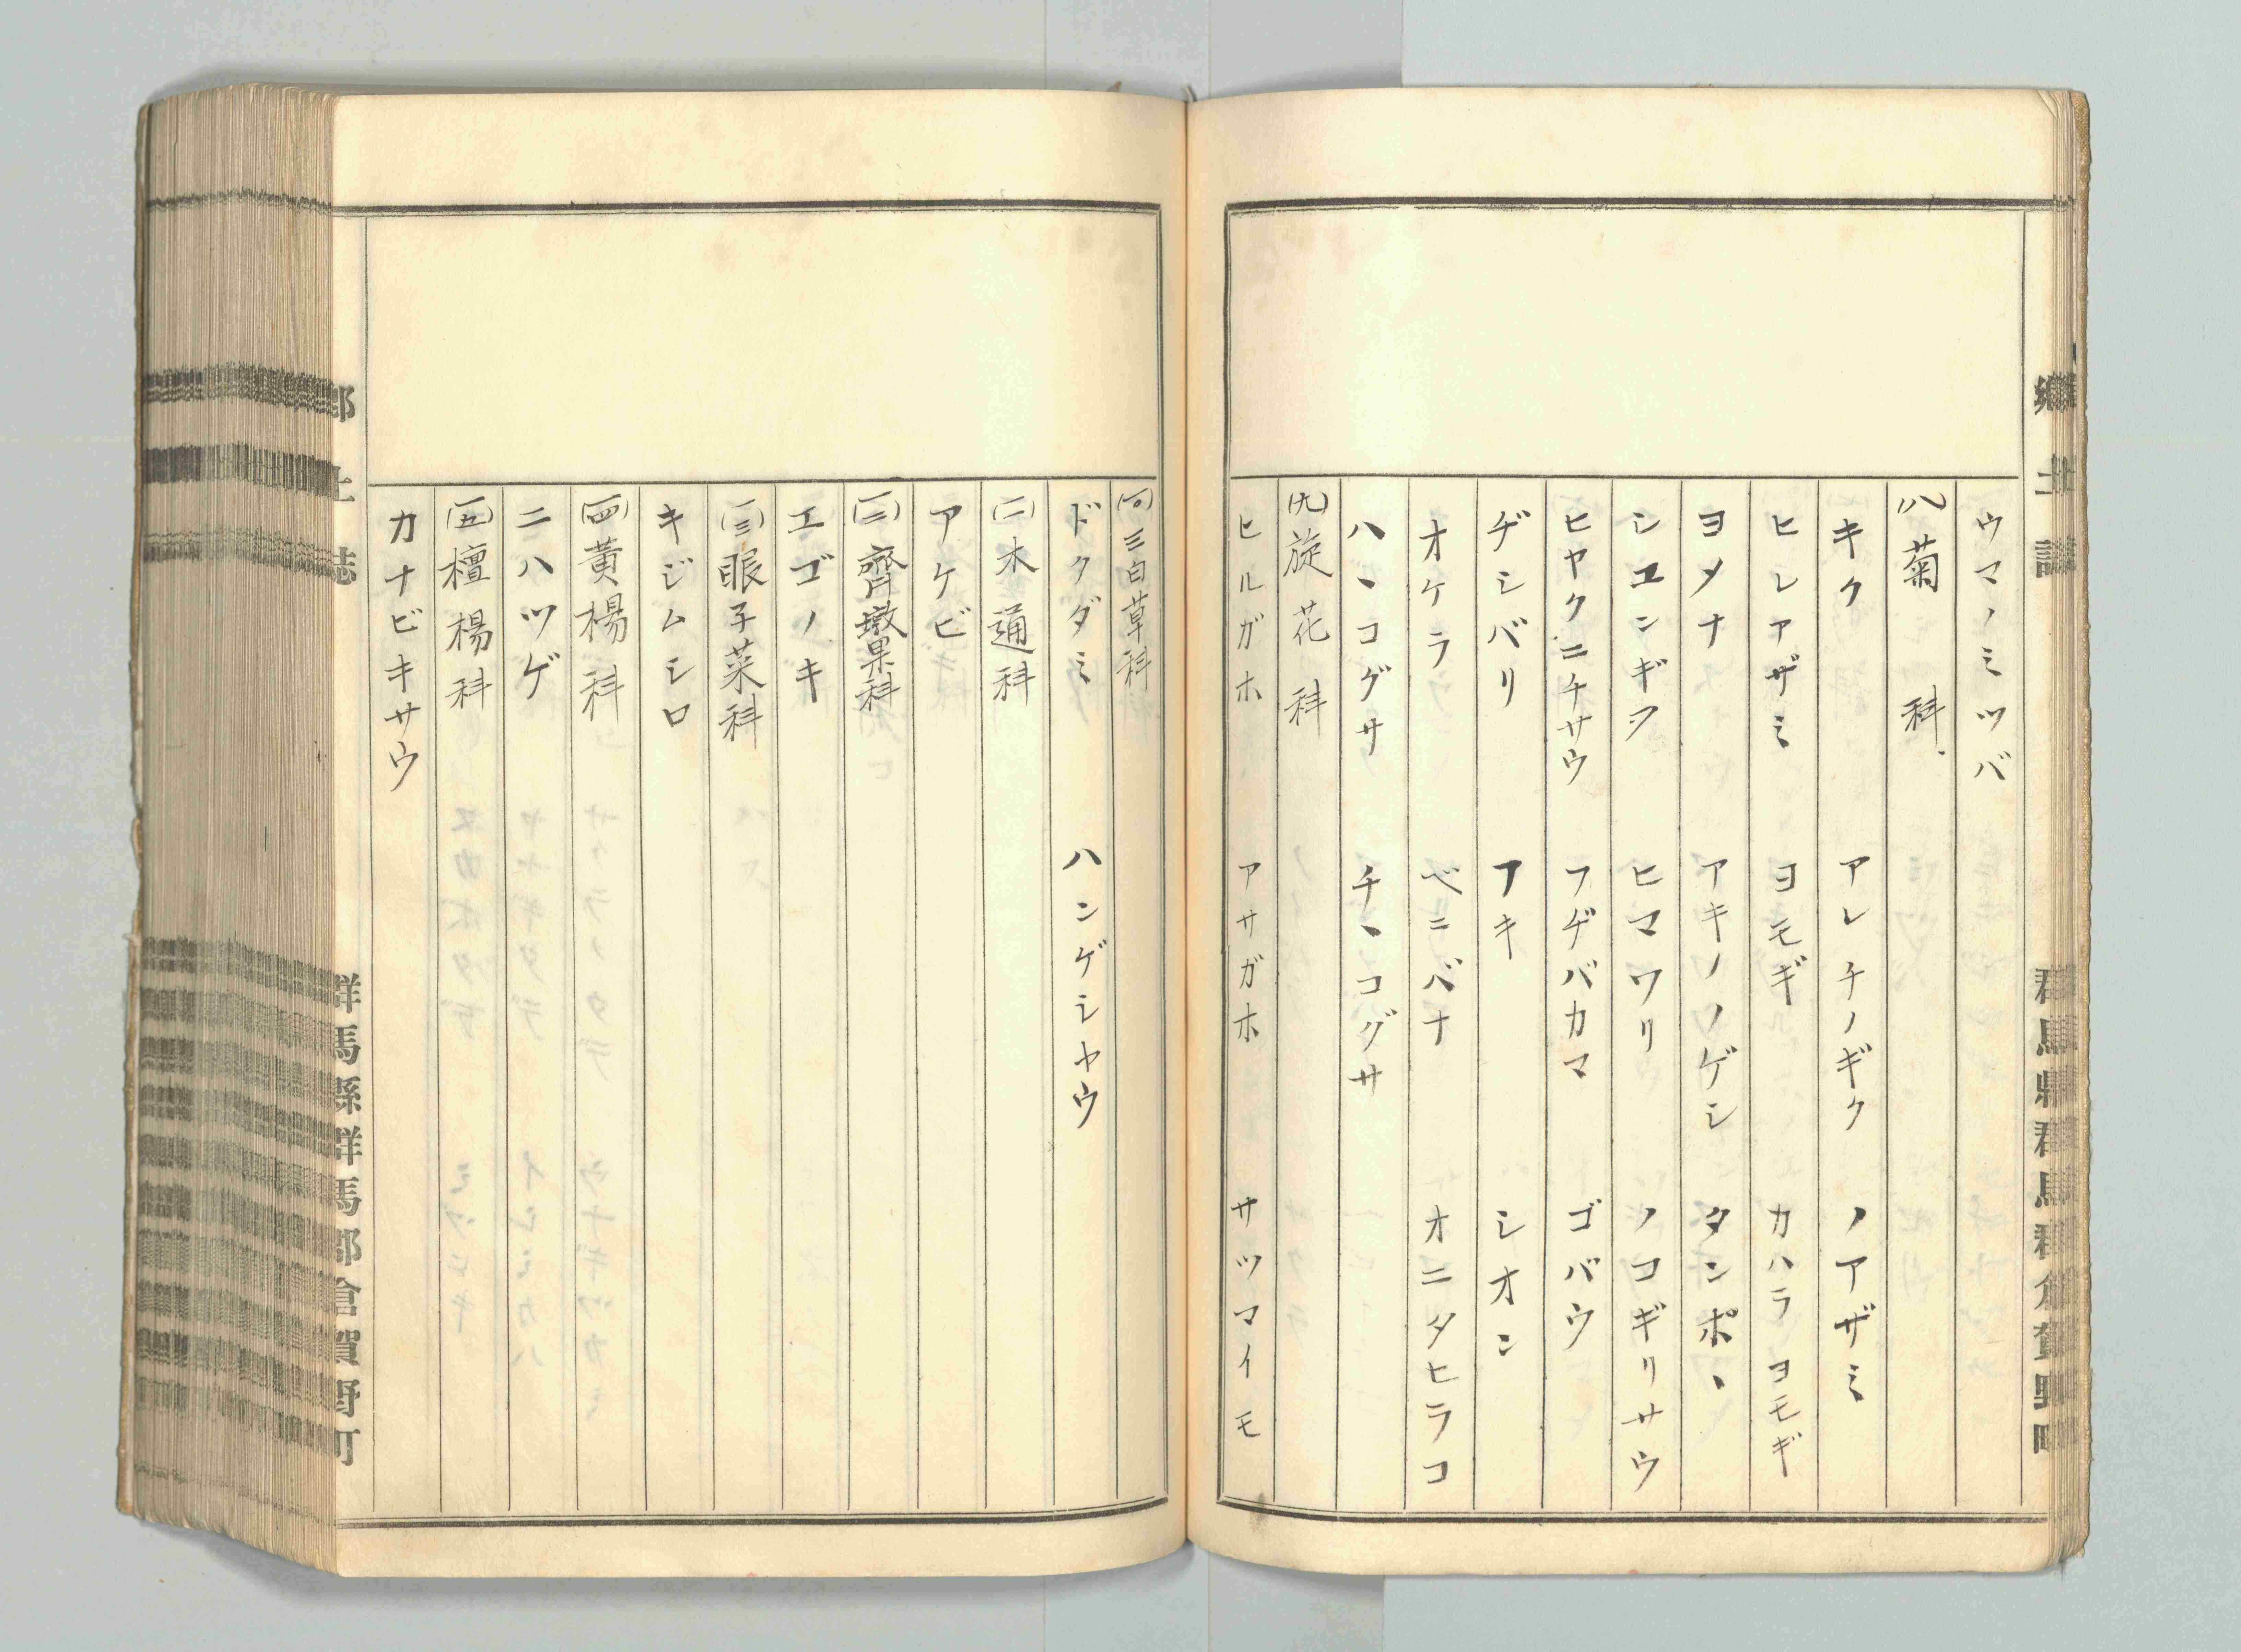 ウマノミツバ
(八)菊科
キク アレチノギク ノアザミ
ヒレアザミ ヨモギ カハラヨモギ
ヨメナ アキノノゲシ タンポヽ
シユンギク ヒマワリ ノコギリサウ
ヒヤクニチサウ フヂバカマ ゴバウ
ヂシバリ フキ シオン
オケラ ベニバナ オニタヒラコ
ハヽコグサ チヽコグサ
(九)旋花科
ヒルガホ アサガホ サツマイモ
(一〇)三白草科
ドクダミ ハンゲシヤウ
(一一)木通科
アケビ
(一二)齊墩果科
エゴノキ
(一三)眼子菜科
キジムシロ
(一四)黃楊科
ニハツゲ
(一五)檀楊科
カナビキサウ
郷土誌
群馬縣群馬郡倉賀野町